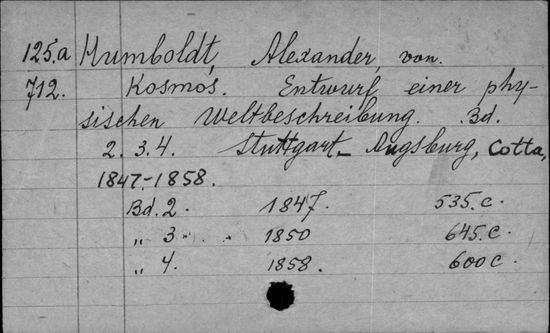 125.a Humboldt, Alexander, von.
712. Kosmos. Entwurf einer phy-
sischen Weltbeschreibung. Bd.
2. 3. 4. Stuttgart - Augsburg, Cotta,
1847-1858.
Bd. 2. 1847. 535. c.
„ 3 1850 645. c
„ 4. 1858. 600 c.